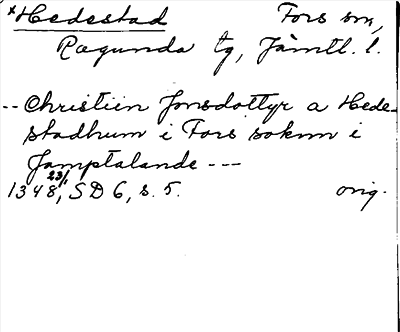 *Hedestad Fors sn,
Ragunda tg, Jämtl. l.
-- Christiin Jonsdottyr a Hede-
stadhum i Fors soknn i
Jamptalande ---
1348 23/1, SD 6, s. 5. orig.